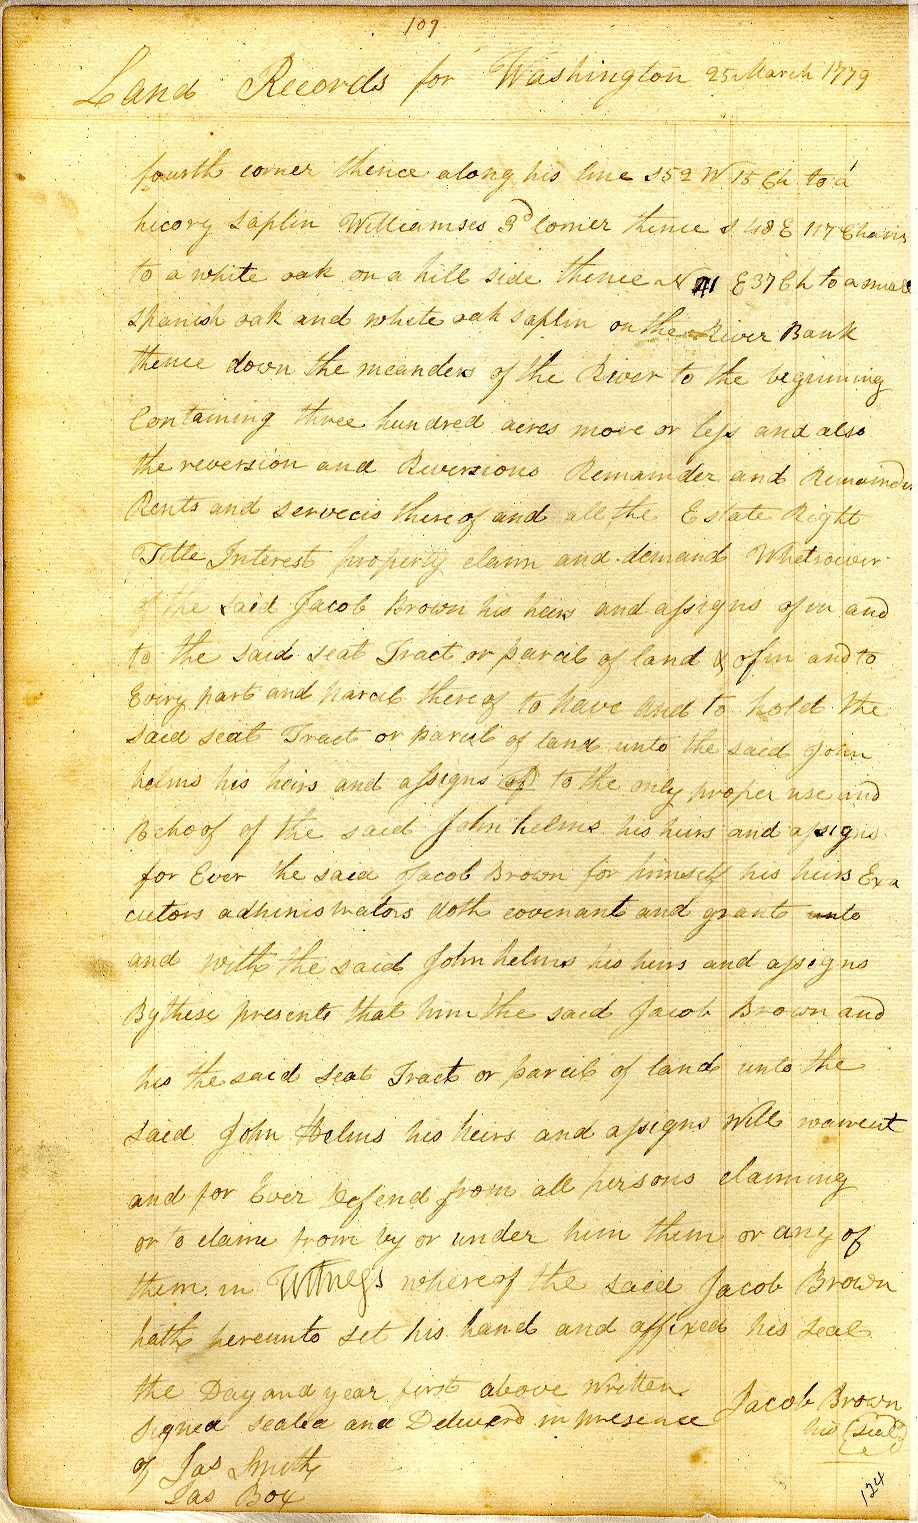 107
Land Records for Washington 25 March 1779
fourth corner thence along his line S 52 W 15 Ch to a
hicory saplin Williamses 3d Corner thence S 48 E 117 Chains
to a white oak on a hill side thence N 41 E 37 Ch to a small
spanish oak and white oak saplin on the River Bank
thence down the meanders of the River to the beginning
Containing three hundred acres more or less and also
the reversion and Reversions Remainder and Remainder
Rents and servecis thereof and all the Estate Right
Title Interest property claim and demand Whatsoever
of the said Jacob Brown his heirs and assigns of in and
to the said seat Tract or parcil of land & of in and to
Every part and parcil thereof to have and to hold the
said seat Tract or parcil of land unto the said John
helms his heirs and assigns of to the only proper use and
Behoof of the said John helms his heirs and assigns
for Ever the said Jacob Brown for himself his heirs Exa
cutors adhinistrators doth covenant and grant unto
and with the said John helms his heirs and assigns
By these presents that him the said Jacob Brown and
his the said seat Tract or parcil of land unto the
said John Helms his heirs and assigns Will warrent
and for Ever Defend from all persons claiming
or to claim from by or under him them or any of
them in Witness whereof the said Jacob Brown
hath hereunto set his hand and affixed his seal
the Day and year first above Written
Jacob Brown
Signed sealed and Deliverd in presence
his (seal)
of Jas Smith
Jas Box
124